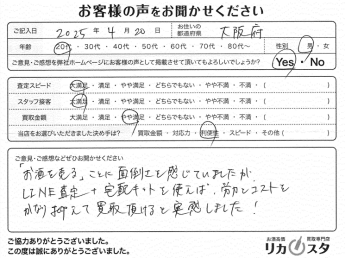 お客様の声をお聞かせください
ご記入日 2025年4月20日 お住いの都道府県 大阪府
年齢 20代・30代・40代・50代・60代・70代・80代〜 性別 男・女
ご意見・ご感想を弊社ホームページにお客様の声として掲載させて頂いてもよろしいでしょうか? Yes・No
査定スピード 大満足・満足・やや満足・どちらでもない・やや不満・不満・( )
スタッフ接客 大満足・満足・やや満足・どちらでもない・やや不満・不満・( )
買取金額 大満足・満足・やや満足・どちらでもない・やや不満・不満・( )
当店をお選びいただきました決め手は? 買取金額・対応力・利便性・スピード・その他( )
ご意見・ご感想などぜひお聞かせください
「お酒を売る」ことに面倒さを感じていましたが、
LINE査定+宅配キットを使えば、労力とコストを
かなり抑えて買取頂けると実感しました!
ご協力ありがとうございました。
この度は誠にありがとうございました。
お酒高価買取専門店
リカスタ